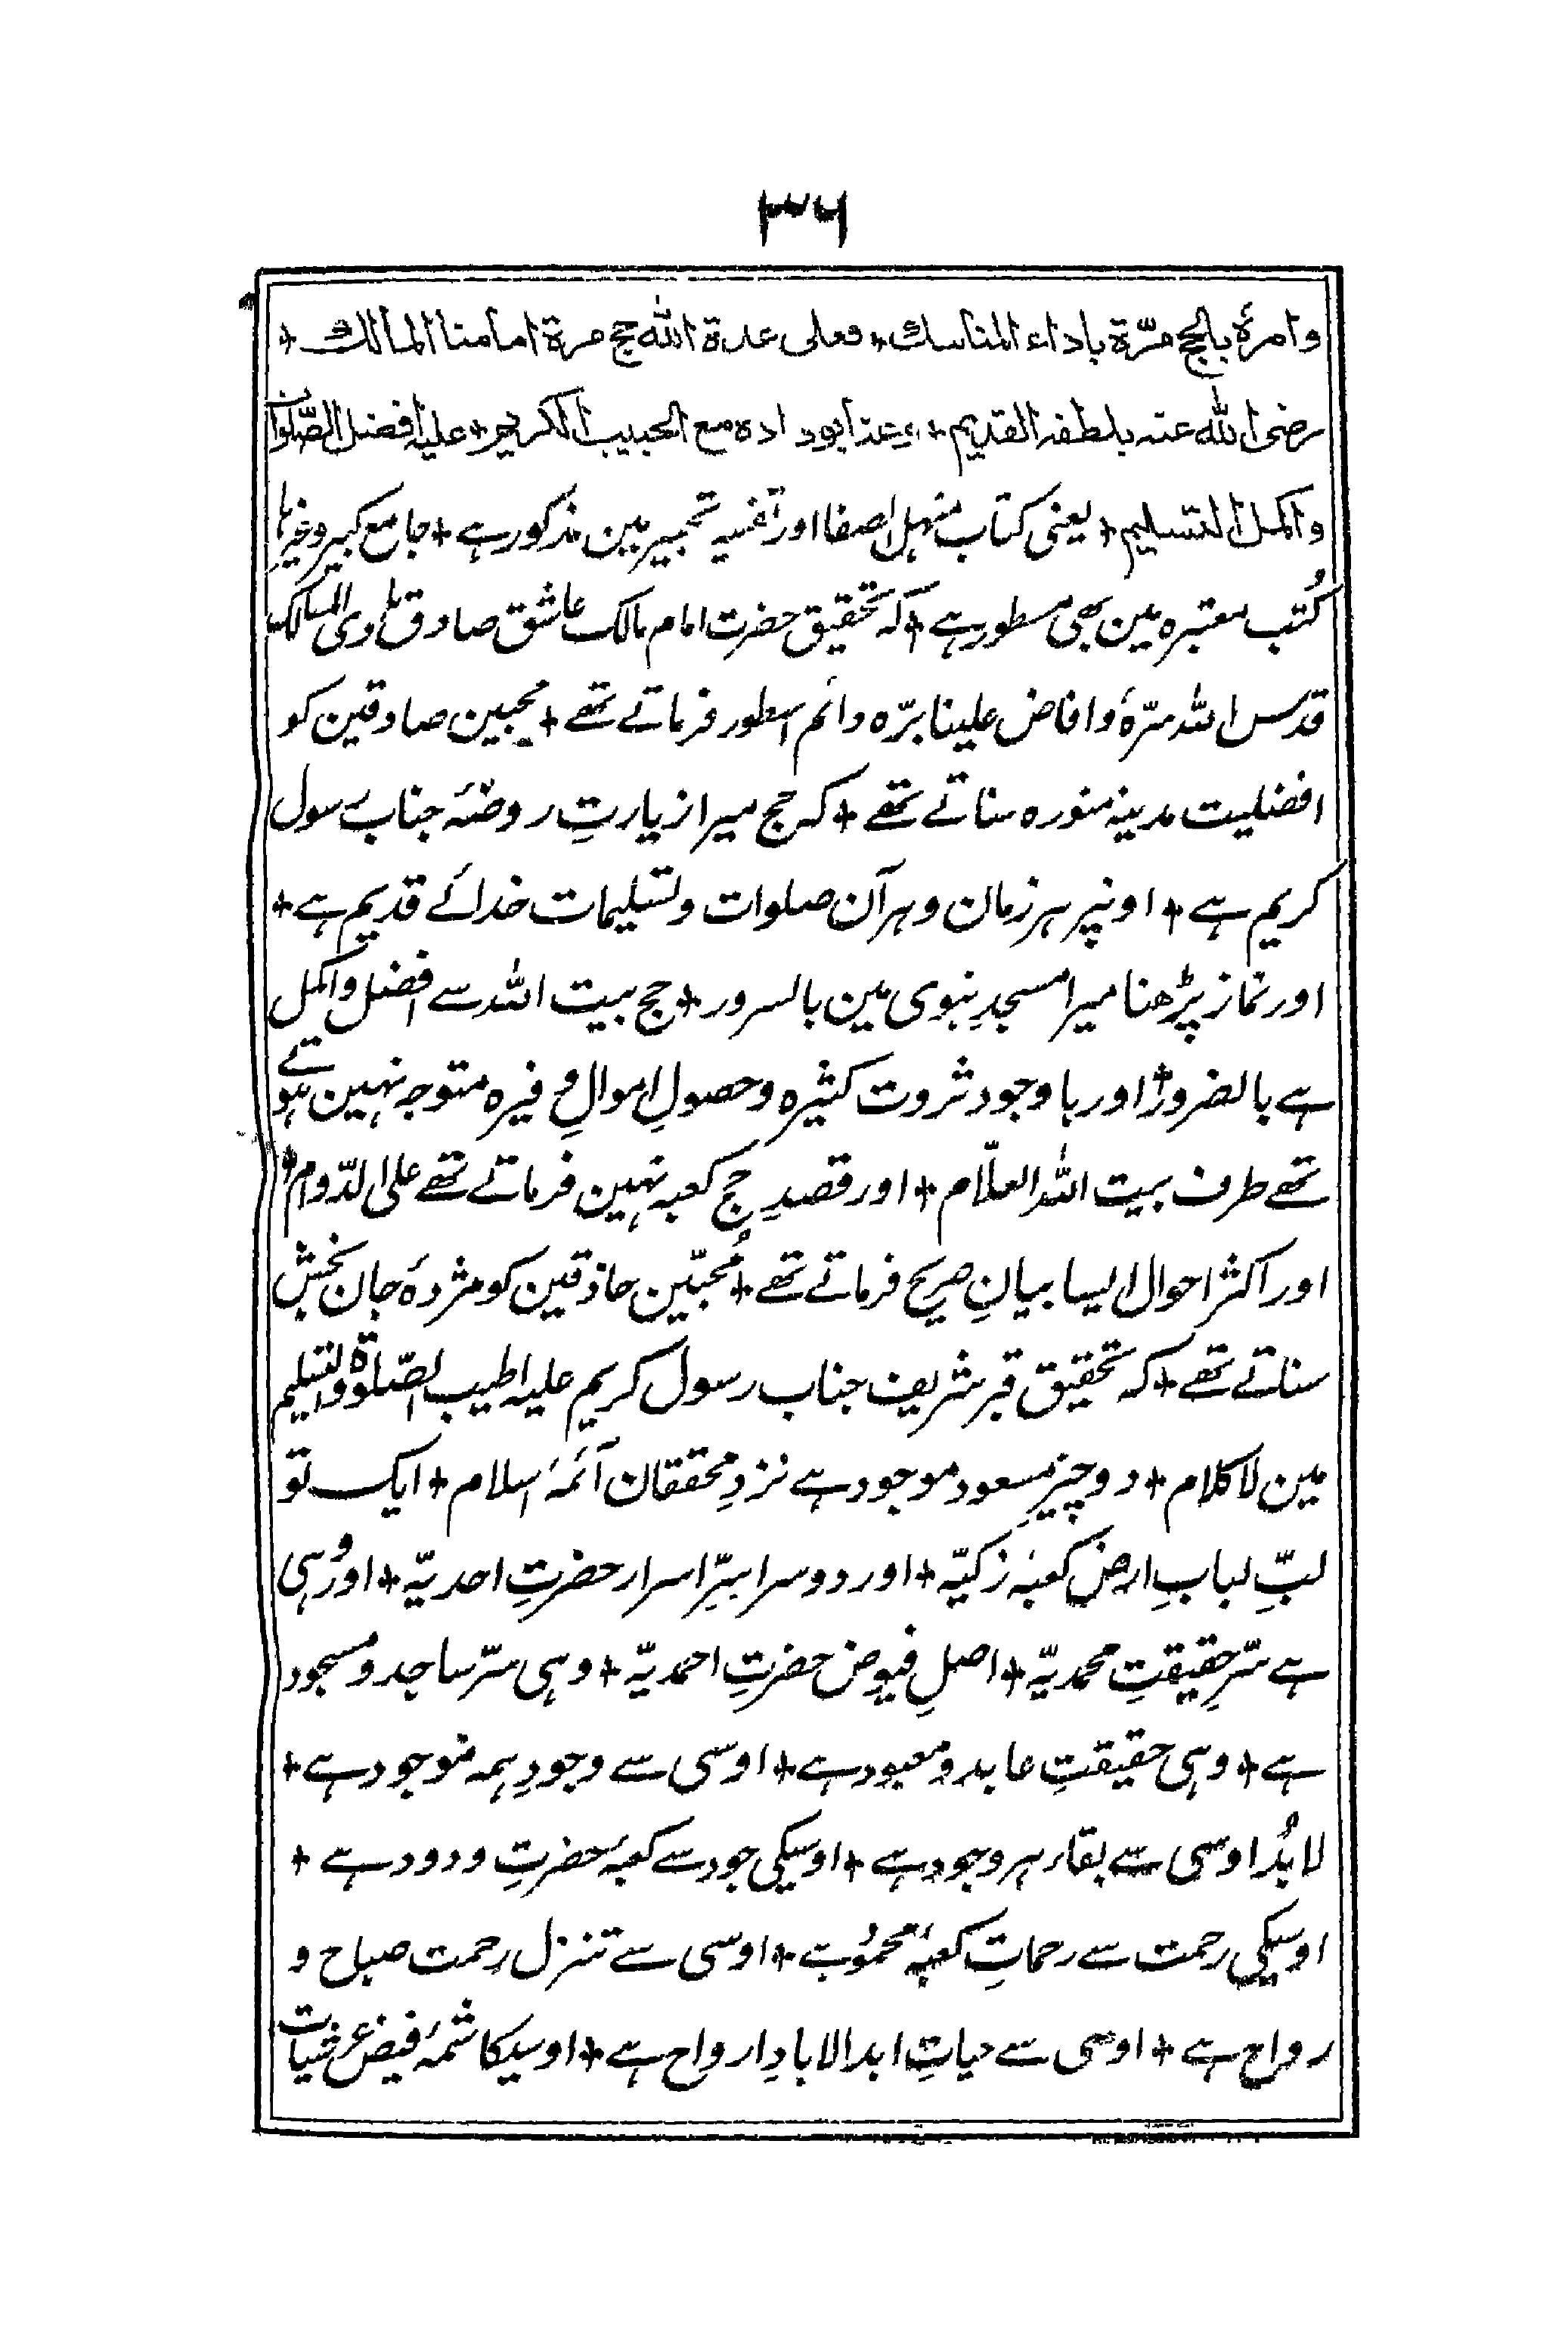 ۳۶
وامرۂ بالحج مرّۃ باداء المناسك + فعلی عدۃ اللہ حج مرۃ امامنا المالك +
رضی اللہ عنہ بلطفہ القدیم + مع الحبیب الکریم + علیہ افضل الصّلوات
واکمل التسلیم + یعنی کتاب منہل الصفا اور تفسیر تحبیر مین مذکور ہے + جامع کبیر وغیرہا
کُتب معتبرہ مین بھی مسطور ہے + کہ تحقیق حضرت امام مالک عاشق صادق ہادی المسالک
قدس اللہ سرّہٗ وافاض علینا برّہ دائم اسطور فرماتے تھے + محبین صادقین کو
افضلیت مدینہ منورہ سناتے تھے + کہ حج میرا زیارتِ روضۂ جناب رسول
کریم ہے + اونپر ہر زمان وہر آن صلوات وتسلیمات خدائے قدیم ہے +
اور نماز پڑھنا میرا مسجدِ نبوی مین بالسرور + حج بیت اللہ سے افضل واکمل
ہے بالضرور + اور باوجود ثروت کثیرہ وحصولِ اموالِ وفیرہ متوجہ نہین ہوتے
تھے طرف بیت اللہ العلّام + اور قصدِ حج کعبہ نہین فرماتے تھے علی الدّوام +
اور اکثر احوال ایسا بیانِ صریح فرماتے تھے + مُحبّین حاذقین کو مژدۂ جان بخش
سناتے تھے + کہ تحقیق قبر شریف جناب رسول کریم علیہ اطیب الصّلوۃ والتسلیم
مین لاکلام + دو چیزِ مسعود موجود ہے نزدِ محققان آئمۂ اسلام + ایک تو
لبِّ لبابِ ارض کعبۂ زکیّہ + اور دوسرا سِرِّ اسرار حضرتِ احدیّہ + اور وُہی
ہے سرِّ حقیقتِ محمدیّہ + اصلِ فیوض حضرتِ احمدیّہ + وہی سرّ ساجد ومسجود
ہے + وہی حقیقتِ عابد ومعبود ہے + اوسی سے وجودِ ہمہ موجود ہے +
لابُد اوسی سے بقاء ہر وجود ہے + اوسیکی جود سے کعبۂ حضرتِ ودود ہے +
اوسیکی رحمت سے رحماتِ کعبۂ ہے + اوسی سے تنزل رحمت صباح و
رواح ہے + اوسی سے حیاتِ ابد الابادِ ارواح ہے + اوسیکا شمۂ فیض